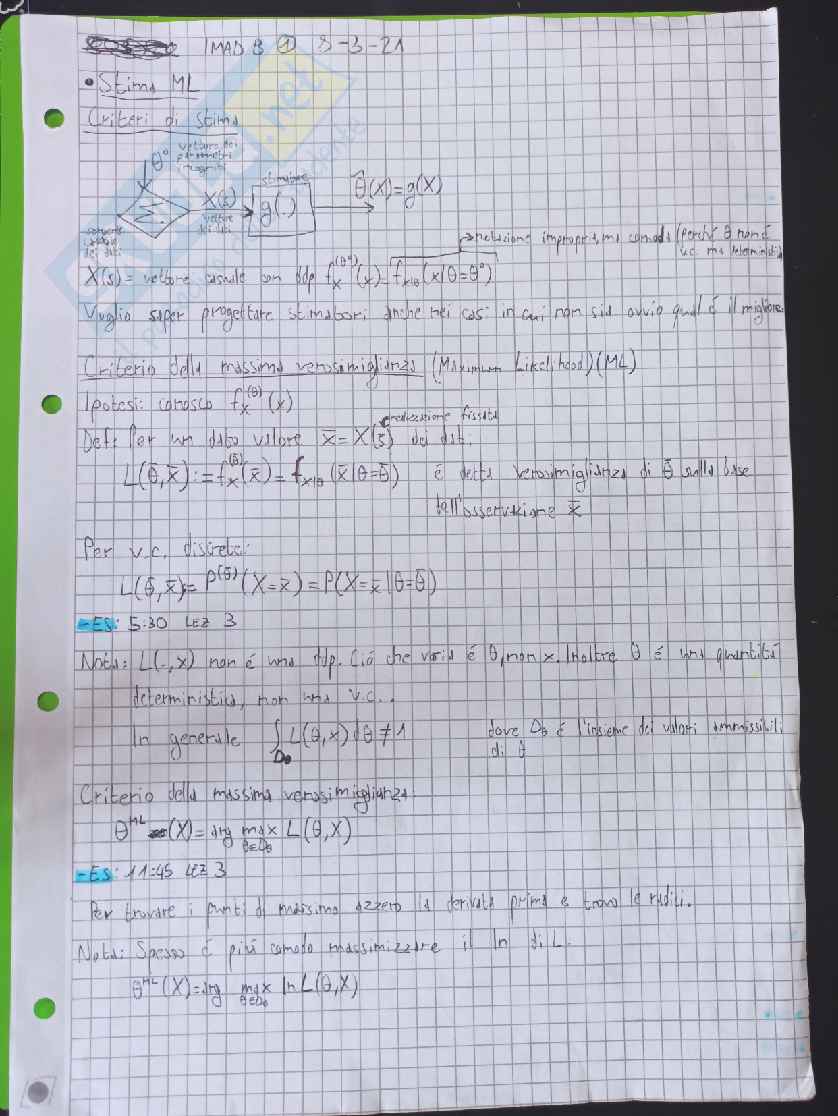 IMAD B ① 8-3-21
• Stima ML
Criteri di stima
θ° vettore dei parametri incogniti
X(s) vettore dei dati
stimatore g(.)
θ̂(X)=g(X)
sorgente dei dati
notazione impropria, ma comoda (perché θ non è v.c. ma deterministica)
X(s) = vettore casuale con ddp f_X^(θ°)(x)=f_x|θ(x|θ=θ°)
Voglio saper progettare stimatori anche nei casi in cui non sia ovvio qual è il migliore.
Criterio della massima verosomiglianza (Maximum Likelihood) (ML)
Ipotesi: conosco f_X^(θ)(x)
realizzazione fissata
Def: Per un dato valore x̄ = X(s̄) dei dati:
L(θ̄,x̄):=f_X^(θ̄)(x̄)=f_x|θ(x̄|θ=θ̄) è detta verosimiglianza di θ̄ sulla base
dell'osservazione x̄
Per v.c. discrete:
L(θ̄,x̄)=P^(θ̄)(X=x̄)=P(X=x̄|θ=θ̄)
-ES: 5:30 LEZ 3
Nota: L(.,x) non è una ddp. Ciò che varia è θ, non x. Inoltre θ è una quantità
deterministica, non una v.c..
In generale ∫_Dθ L(θ,x)dθ≠1 dove Dθ è l'insieme dei valori ammissibili
di θ
Criterio della massima verosimiglianza:
θ^ML(X)=arg max_θ∈Dθ L(θ,X)
-ES: 11:45 LEZ 3
Per trovare i punti di massimo azzero la derivata prima e trovo le radici.
Nota: Spesso è più comodo massimizzare il ln di L.
θ^ML(X)=arg max_θ∈Dθ ln L(θ,X)